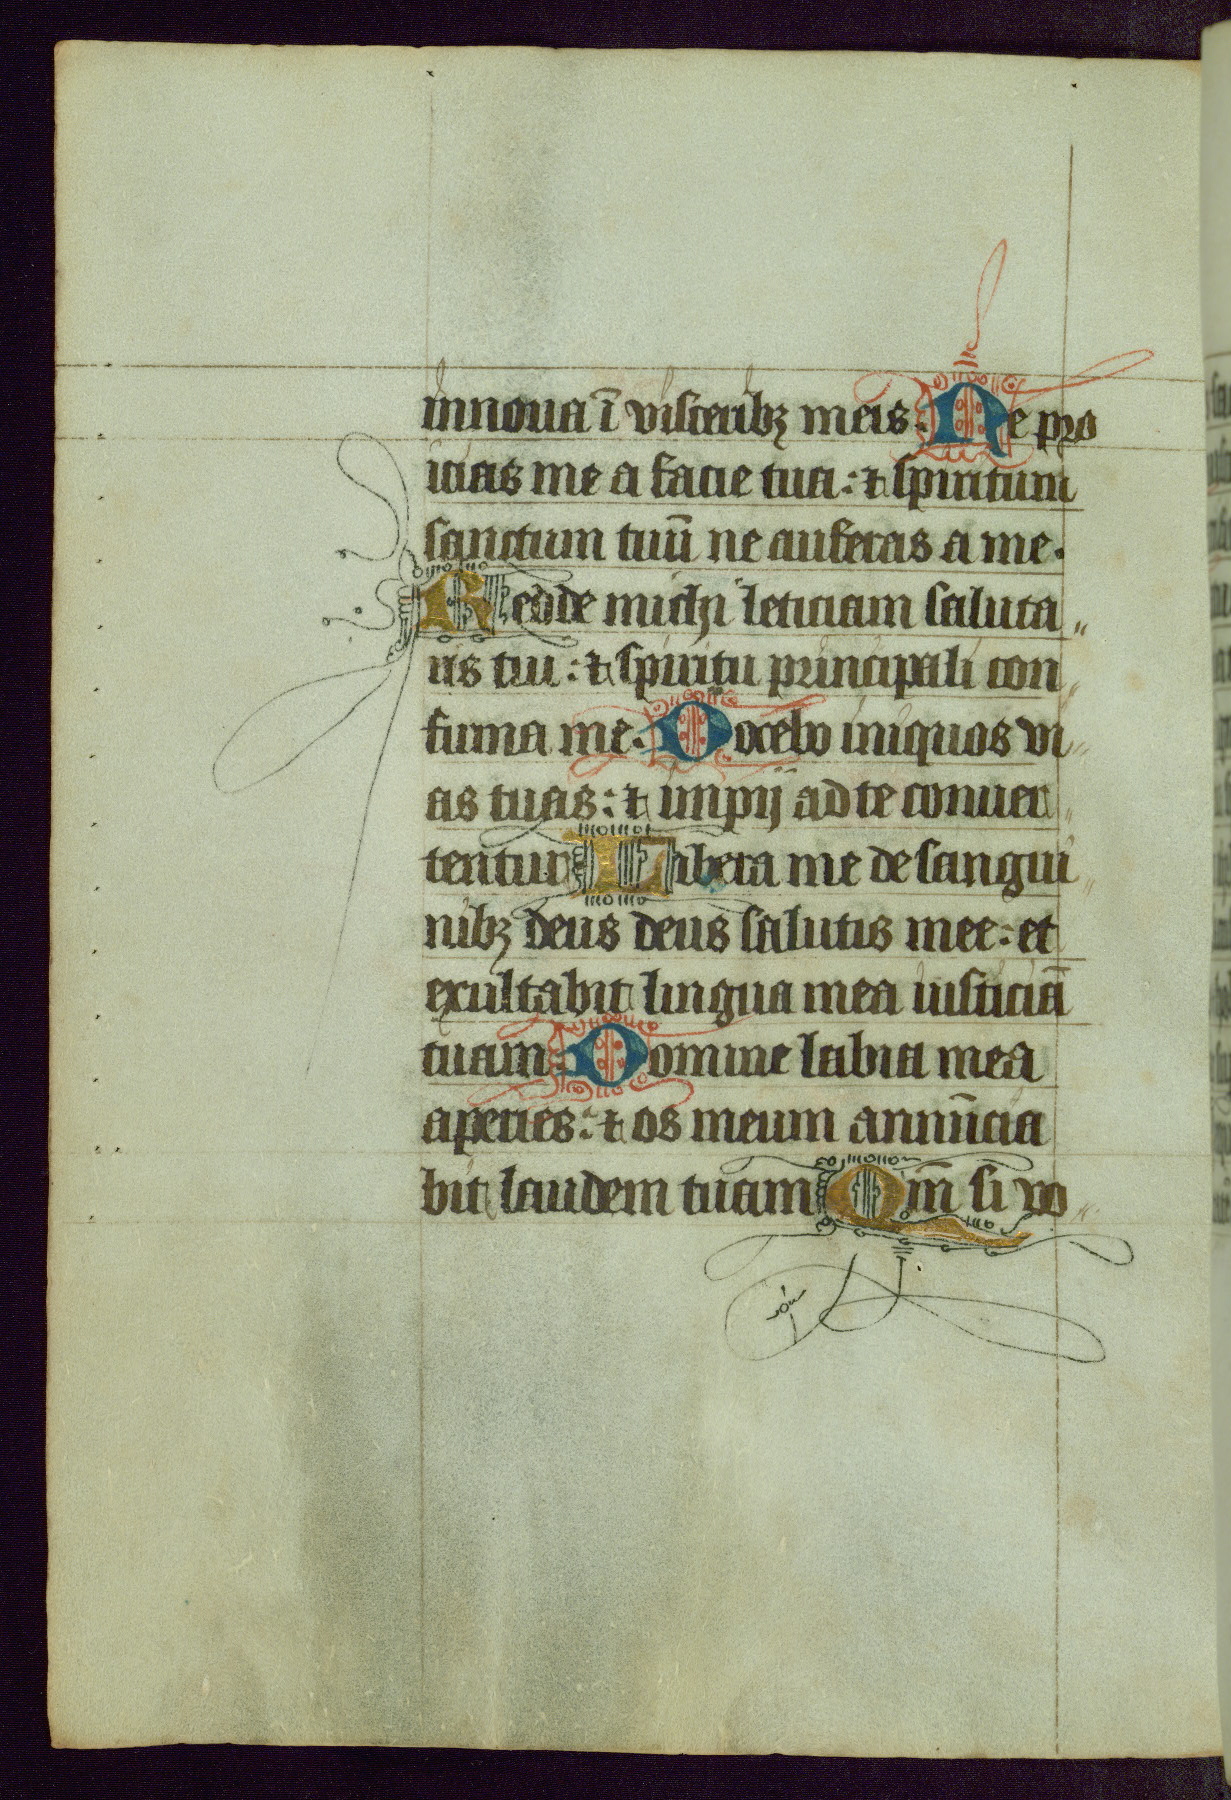 innoua ī visceribꝫ meis. Ne pro
icias me a facie tua: ⁊ spiritum
sanctum tuū ne auferas a me.
Redde michi leticiam saluta〃
ris tui: ⁊ spiritu principali con〃
firma me. Docebo iniquos vi〃
as tuas: ⁊ impij ad te conuer〃
tentur Libera me de sangui〃
nibꝫ deus deus salutis mee: et
exultabit lingua mea iusticiā
tuam. Domine labia mea
aperies: ⁊ os meum annūcia
bit laudem tuam Qm̄ si vo〃